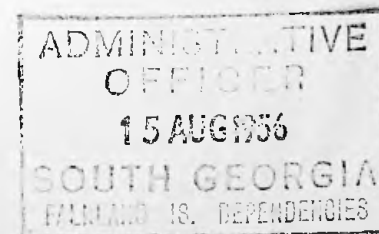 ADMINISTRATIVE
OFFICER
15 AUG 1956
SOUTH GEORGIA
FALKLAND IS. DEPENDENCIES